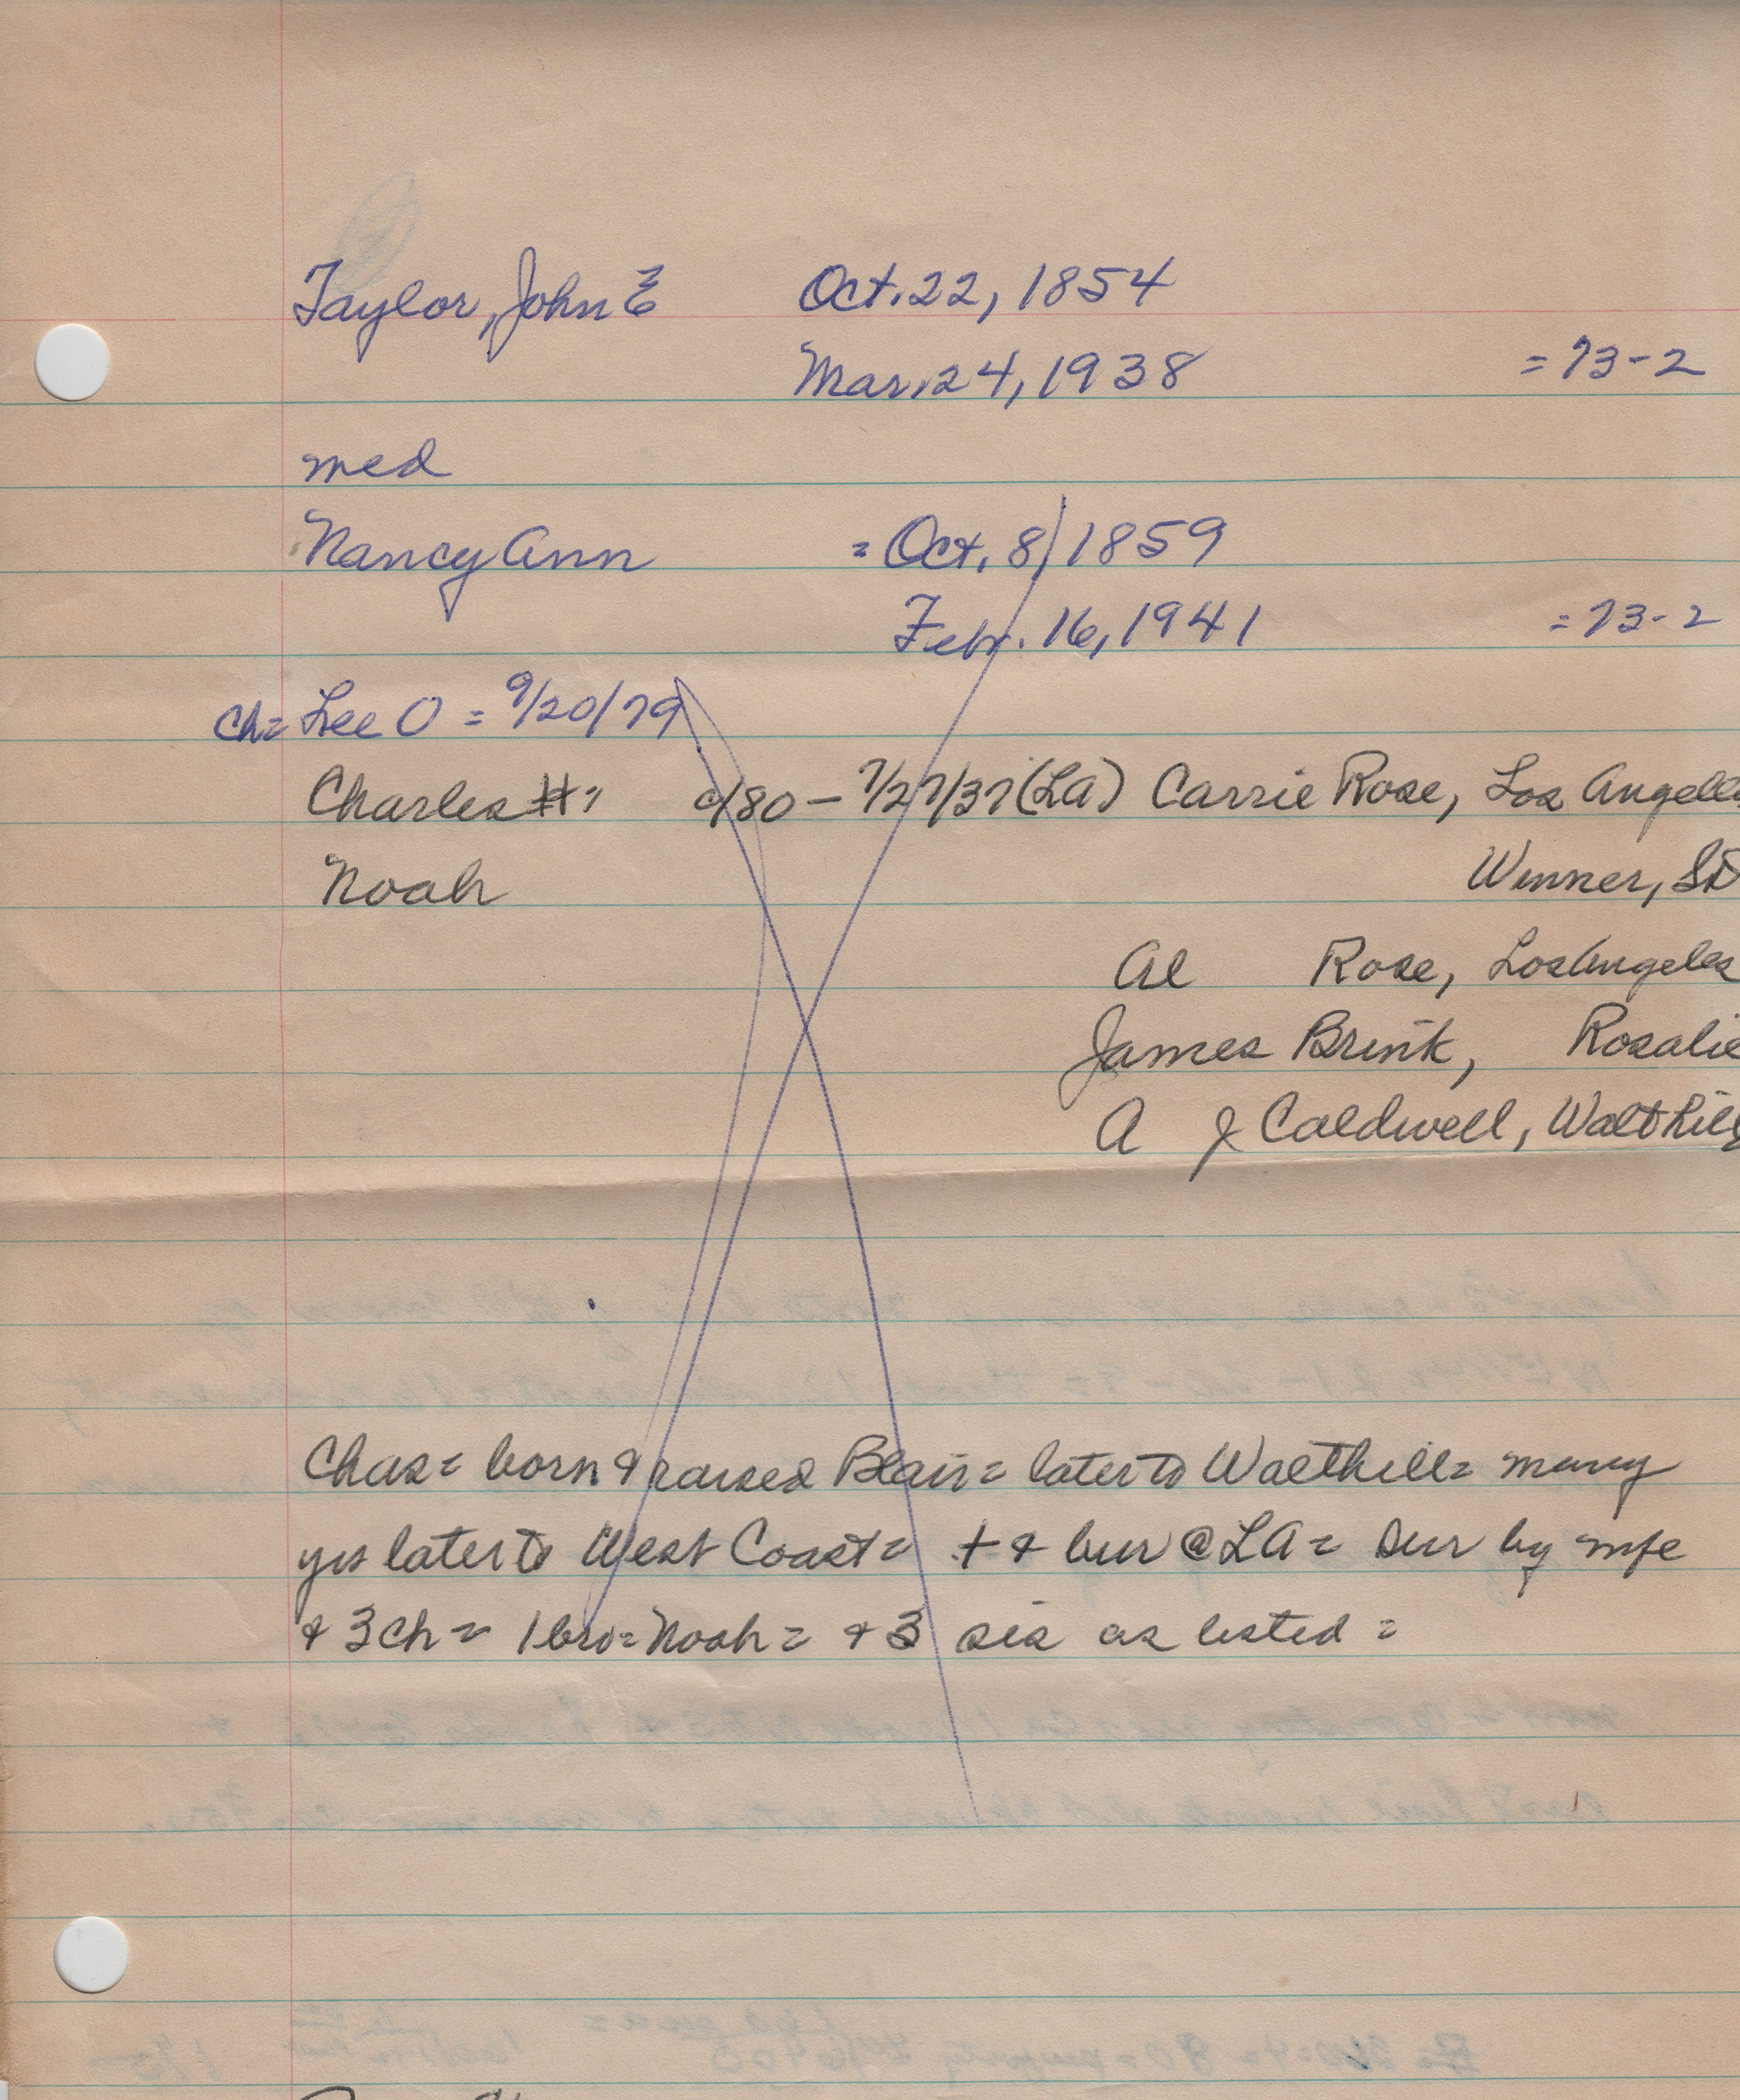 Taylor, John E Oct. 22, 1854
Mar. 24, 1938 = 73-2
med
Nancy Ann = Oct. 8, 1859
Febr. 16, 1941 = 73-2
ch= Lee O = 9/20/79
Charles H= c/80 - 7/27/37 (LA) Carrie Rose, Los Angeles
Noah Winner, SD
Al Rose, Los Angeles
James Brink, Rosalie
A J Caldwell, Walthill
Chas= born & raised Blair= later to Walthill= many
yrs later to West Coast= + & bur @ LA= sur by wife
& 3 ch = 1 bro= Noah= & 3 sis as listed =